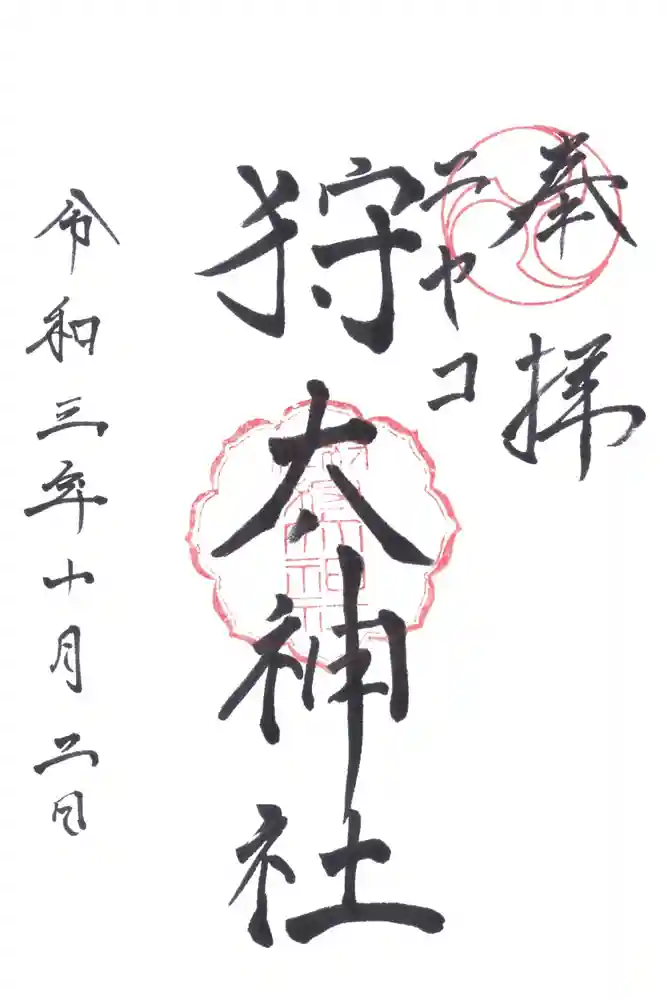 奉拝
ニセコ
狩太神社
令和三年十月二日